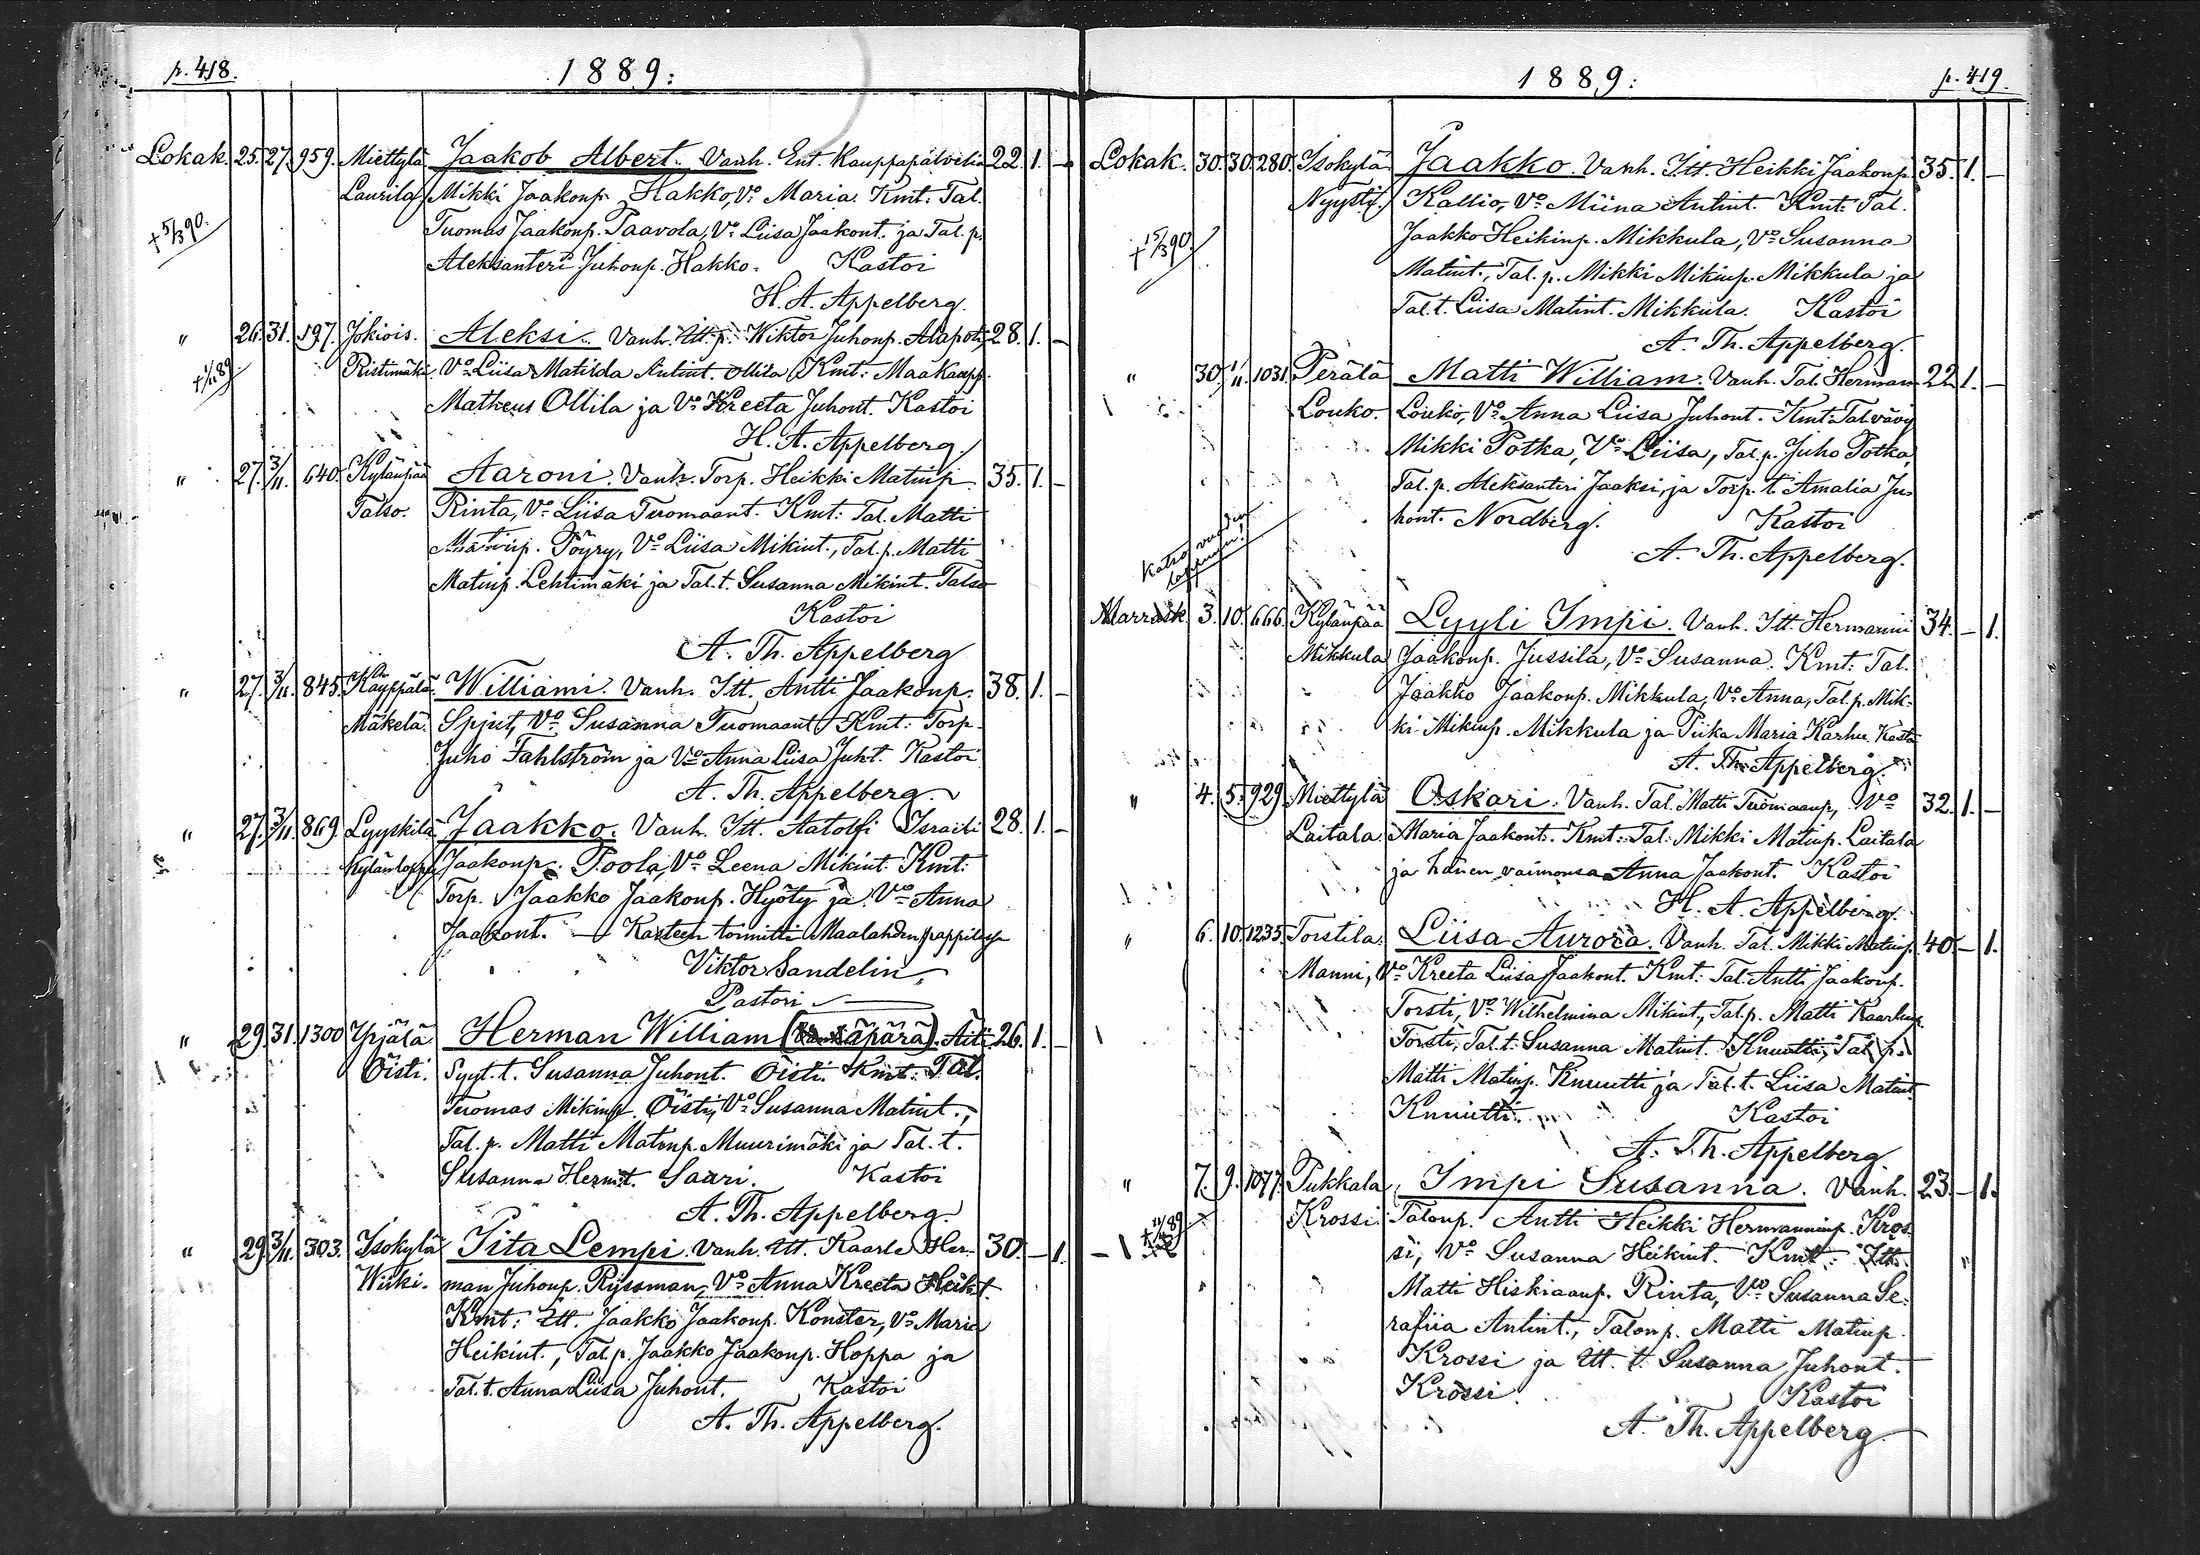 p. 418.
1889:
Lokak. 25. 27. 959. Miettylä Jaakob Albert. Vanh. Ent. Kauppapalvelia 22. 1. –
Laurila Mikki Jaakonp. Hakko, Vo Maria. Kmt: Tal.
+ 5/3 90. Tuomas Jaakonp. Paavola, Vo Liisa Jaakont. ja Tal. p.
Aleksanteri Juhonp. Hakko. Kastoi
H. A. Appelberg.
" 26. 31. 197. Jokiois. Aleksi. Vanh. Itt. p. Wiktor Juhonp. Alapoti, 28. 1. –
Ristimäki, Vo Liisa Matilda Antint. Ollila Kmt: Maakaupp.
Matheus Ollila ja Vo Kreeta Juhont. Kastoi
H. A. Appelberg.
" 27. 3/11. 640. Kylänpää Aaroni. Vanh. Torp. Heikki Matinp. 35. 1. –
Talso. Rinta, Vo Liisa Tuomaant. Kmt: Tal. Matti
Matinp. Pöyry, Vo Liisa Mikint., Tal. p. Matti
Matinp. Lehtimäki ja Tal. t. Susanna Mikint. Talso
Kastoi
A. Th. Appelberg
" 27. 3/11. 845. Käyppälä. Williami. Vanh. Itt. Antti Jaakonp. 38. 1. –
Mäkelä. Spjut, Vo Susanna Tuomaant. Kmt: Torp.
Juho Fahlström ja Vo Anna Liisa Juht. Kastoi
A. Th. Appelberg.
" 27. 3/11 869 Lyyskilä Jaakko. Vanh. Itt. Aatolfi Israili 28. 1. –
Kylänloppu Jaakonp. Poola, Vo Leena Mikint. Kmt:
Torp. Jaakko Jaakonp. Hyöty ja Vo Anna
Jaakont. – Kasteen toimitti Maalahden pappilassa
Viktor Sandelin,
Pastori
" 29. 31. 1300 Ypjälä Herman William (äpärä). Äiti 26. 1. –
Öisti. Syyt. t. Susanna Juhont. Öisti. Kmt: Tal.
Tuomas Mikinp. Öisti, Vo Susanna Matint.,
Tal. p. Matti Matinp. Muurimäki ja Tal. t.
Susanna Hermt. Saari. Kastoi
A. Th. Appelberg.
" 29. 3/11. 303. Isokylä Tita Lempi. Vanh. Itt. Kaarle Her- 30. – 1.
Wiiki. man Juhonp. Ryssman, Vo Anna Kreeta Heikt.
Kmt: Itt. Jaakko Jaakonp. Konster, Vo Maria
Heikint., Tal. p. Jaakko Jaakonp. Hoppa ja
Tal. t. Anna Liisa Juhont. Kastoi
A. Th. Appelberg.
1889:
p. 419.
Lokak. 30. 30. 280. Isokylä Jaakko. Vanh. Itt. Heikki Jaakonp. 35. 1. –
Nyysti. Kallio, Vo Miina Antint. Kmt: Tal.
+ 15/3 90. Jaakko Heikinp. Mikkula, Vo Susanna
Matint., Tal. p. Mikki Mikinp. Mikkula ja
Tal. t. Liisa Matint. Mikkula. Kastoi
A. Th. Appelberg.
" 30. 1/11. 1031. Perälä Matti William. Vanh. Tal. Herman 22. 1. –
Louko. Louko, Vo Anna Liisa Juhont. Kmt: Tal. vävy
Mikki Potka, Vo Liisa, Tal. p. Juho Potka,
Tal. p. Aleksanteri Jaaksi, ja Torp. t. Amalia Ju-
hont. Nordberg. Kastoi
A. Th. Appelberg.
Katso vuoden loppuun!
Marrask. 3. 10. 666. Kylänpää Lyyli Impi. Vanh. Itt. Hermanni 34. – 1.
Mikkula Jaakonp. Jussila, Vo Susanna. Kmt: Tal.
Jaakko Jaakonp. Mikkula, Vo Anna, Tal. p. Mik-
ki Mikinp. Mikkula ja Piika Maria Karhu. Kastoi
A. Th. Appelberg.
" 4. 5. 929. Miettylä Oskari. Vanh. Tal. Matti Tuomaanp., Vo 32. 1. –
Laitala Maria Jaakont. Kmt: Tal. Mikki Matinp. Laitala
ja hänen vaimonsa Anna Jaakont. Kastoi
H. A. Appelberg.
" 6. 10. 1235. Torstila. Liisa Aurora. Vanh. Tal. Mikki Matinp. 40. – 1.
Manni, Vo Kreeta Liisa Jaakont. Kmt: Tal. Antti Jaakonp.
Torsti, Vo Wilhelmina Mikint., Tal. p. Matti Kaarlenp.
Torsti, Tal. t. Susanna Matint. Knuutti, Tal. p.
Matti Matinp. Knuutti ja Tal. t. Liisa Matint.
Knuutti. Kastoi
A. Th. Appelberg.
" 7. 9. 1077. Pukkala Impi Susanna. Vanh. 23. – 1.
Krossi. Talonp. Antti Heikki Hermanninp. Kros-
si, Vo Susanna Heikint. Kmt: Itt.
Matti Hiskiaanp. Rinta, Vo Susanna Se-
rafiia Antint., Talonp. Matti Matinp.
Krossi ja Itt. t. Susanna Juhont.
Krossi. Kastoi
A. Th. Appelberg.